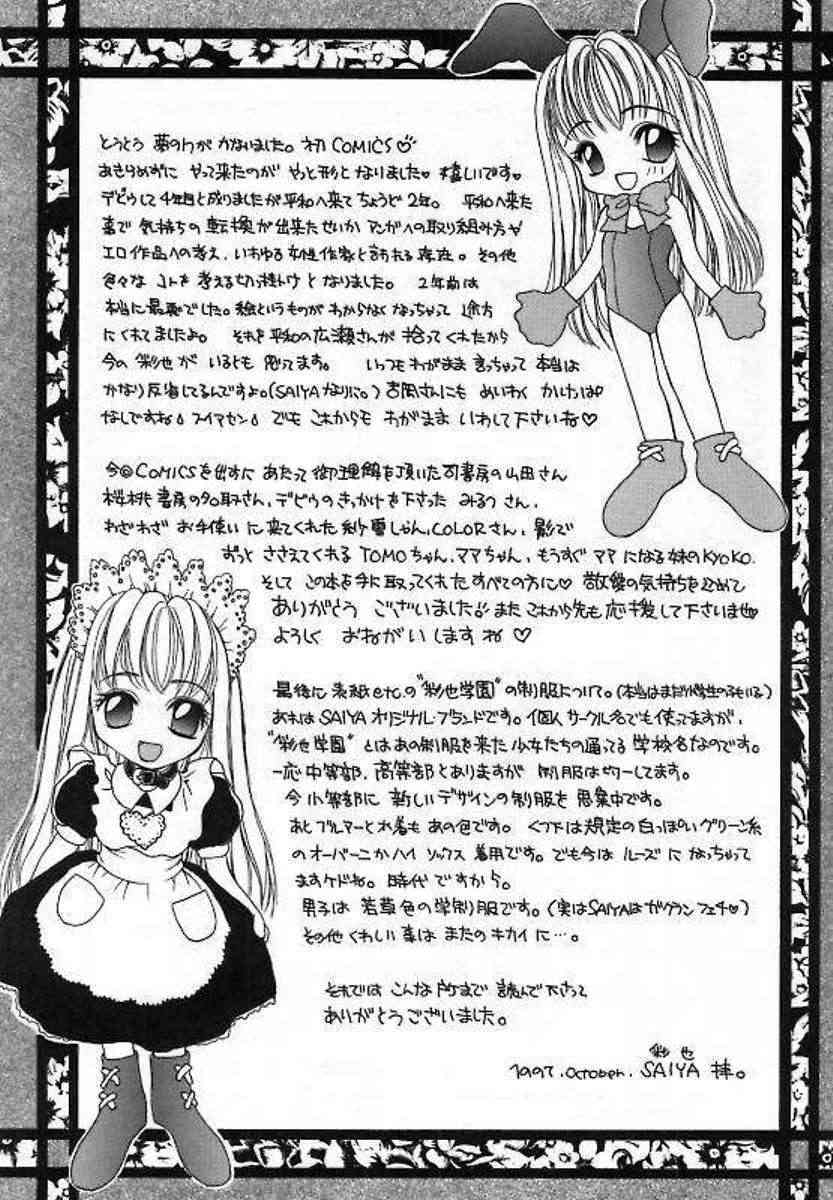 とうとう 夢の1つが かないました。初 COMICS♡
あきらめずに やって来たのが やっと形となりました♡ 嬉しいです♡
デビウして 4年目と成りましたが平和へ来て ちょうど2年。 平和へ来た
事で 気持ちの 転換が出来たせいか マンガへの取り組み方や
エロ作品への考え、いわゆる女性作家と言われる存在。その他
色々な コトを 考える切っ掛けと なりました。 2年前は
本当に最悪でした。絵というものが わからなく なっちゃって 途方
にくれてましたよ。 それを平和の広瀬さんが 拾って くれたから
今の 彩也が いるとも 思ってます。 いつもわがまま 言っちゃって 本当は
かなり反省してるんですよ。(SAIYAなりに。) 吉岡さんにも めいわく かけっぱ
なしですね スイマセン でも これからも わがまま いわして下さいね♡
今のCOMICSを出すに あたって 御理解を頂いた司書房の山田さん
桜桃書房の名取さん、デビウの きっかけを下さった みるつ さん、
わざわざ お手伝いに来てくれた 紗雪しゃん、COLORさん、影で
ずっと ささえてくれる TOMOちゃん、ママちゃん、もうすぐ ママ になる妹のKYOKO.
そして この本を手に取ってくれた すべての方に♡ 敬愛の気持ちを込めて
ありがとう ございました。また これから先も 応援して下さいませ♡
よろしく おねがい しますね ♡
最後に 表紙etc.の "彩也学園" の制服について。(本当はまだ
あれは SAIYA オリジナル・ブランドです。個人サークル名でも使ってますが、
"彩也学園" とは あの制服を来た 少女たちの通ってる 学校名なのです。
一応中等部、高等部とありますが 制服は均一してます。
今 小等部に 新しいデザインの制服を 思案中です。
あと ブルマーと水着も あの色です。 くつ下は規定の白っぽい グリーン系
の オーバーニか ハイ ソックス 着用です。でも今は ルーズ に なっちゃって
ますケドね。 時代 ですから。
男子は 若草色の学制服です。(実はSAIYAはガクラン フェチ♡)
その他 くわしい 事は またの キカイに…。
それでは こんな 所まで 読んで 下さって
ありがとうございました。
彩 也
1997. October. SAIYA 拝。